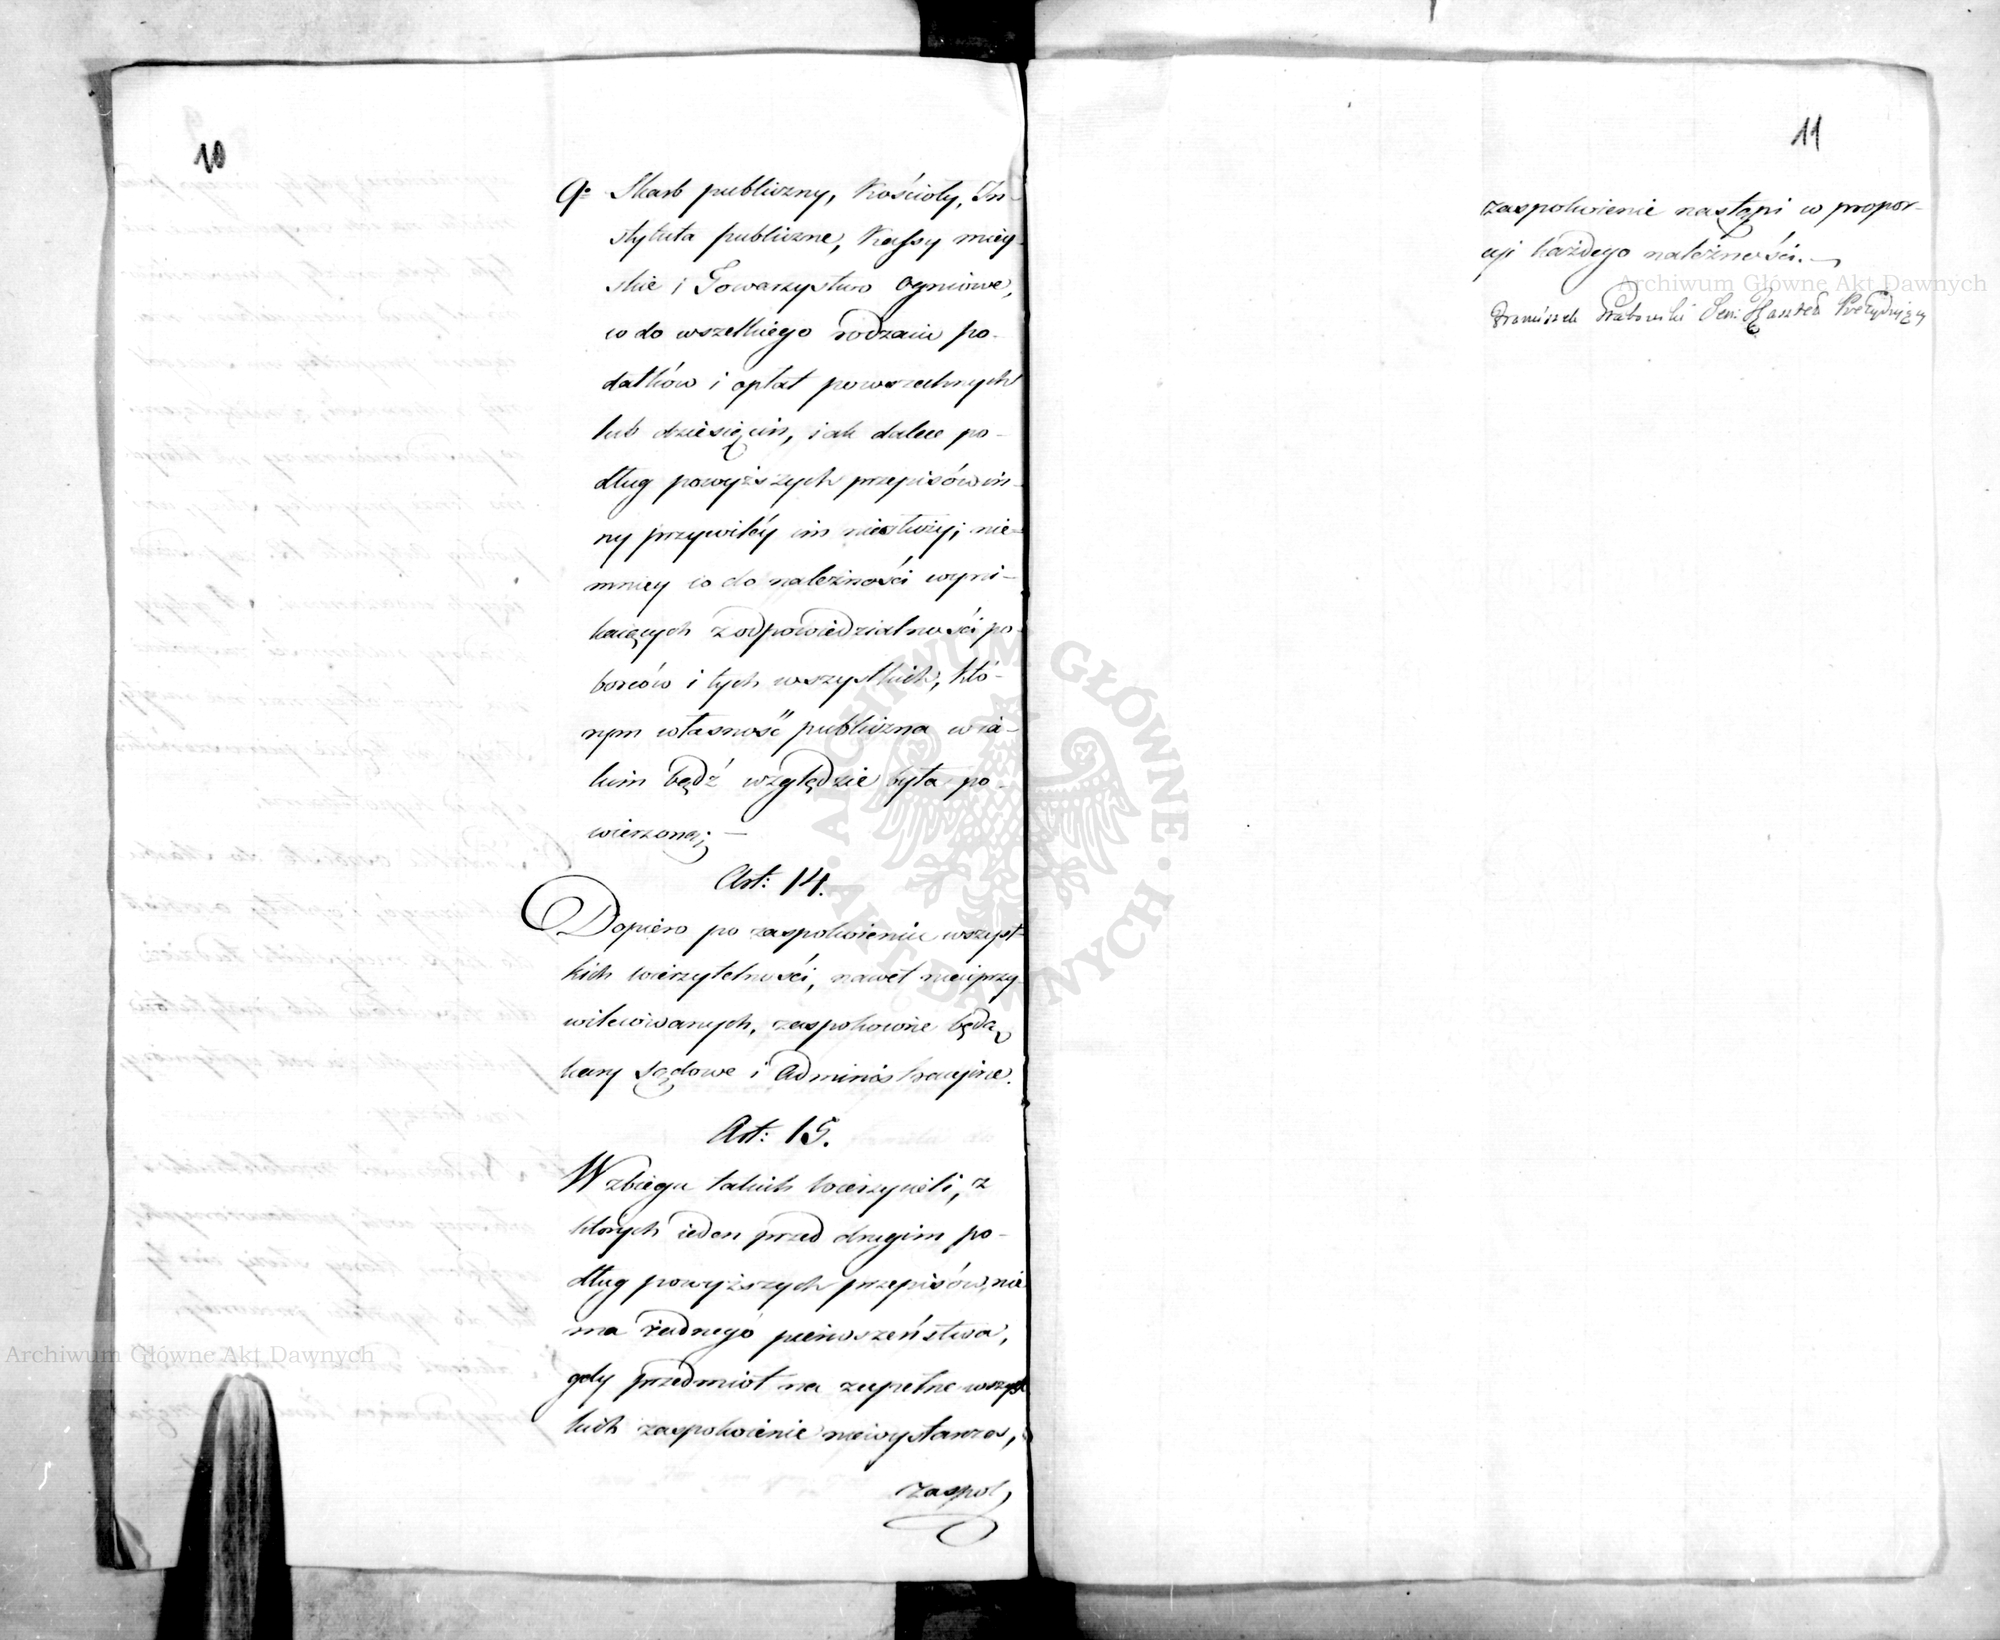 10
9º Skarb publiczny, Kościoły, In-
stytuta publiczne, Kassy miey-
skie i Towarzystwo Ogniowe,
co do wszelkiego rodzaiu po-
datków i opłat powszechnych
lub dziesięcin, iak dalece po-
dług powyższych przepisów in-
ny przywiléy im niesłuży; nie-
mniey co do należności wyni-
kaiących z odpowiedzialności po-
borców i tych wszystkich, któ-
rym własność publiczna w ia-
kim bądź względzie była po-
wierzoną; —
Art: 14.
Dopiero po zaspokoieniu wszyst-
kich wierzytelności, nawet nieuprzy-
wileiowanych, zaspokoione będą
kary sądowe i Administracyine.
Art: 15.
W zbiegu takich wierzycieli, z
których ieden przed drugim po-
dług powyższych przepisów, nie
ma żadnego pierwszeństwa,
gdy przedmiot na zupełne wszyst-
kich zaspokoienie niewystarcza,
zaspok
11
zaspokoienie nastąpi w propor-
cyi każdego należności. —
Franciszek Grabowski Sen: Kasztel: Prezyduiący
Archiwum Główne Akt Dawnych
Archiwum Główne Akt Dawnych
ARCHIWUM GŁÓWNE · AKT DAWNYCH ·